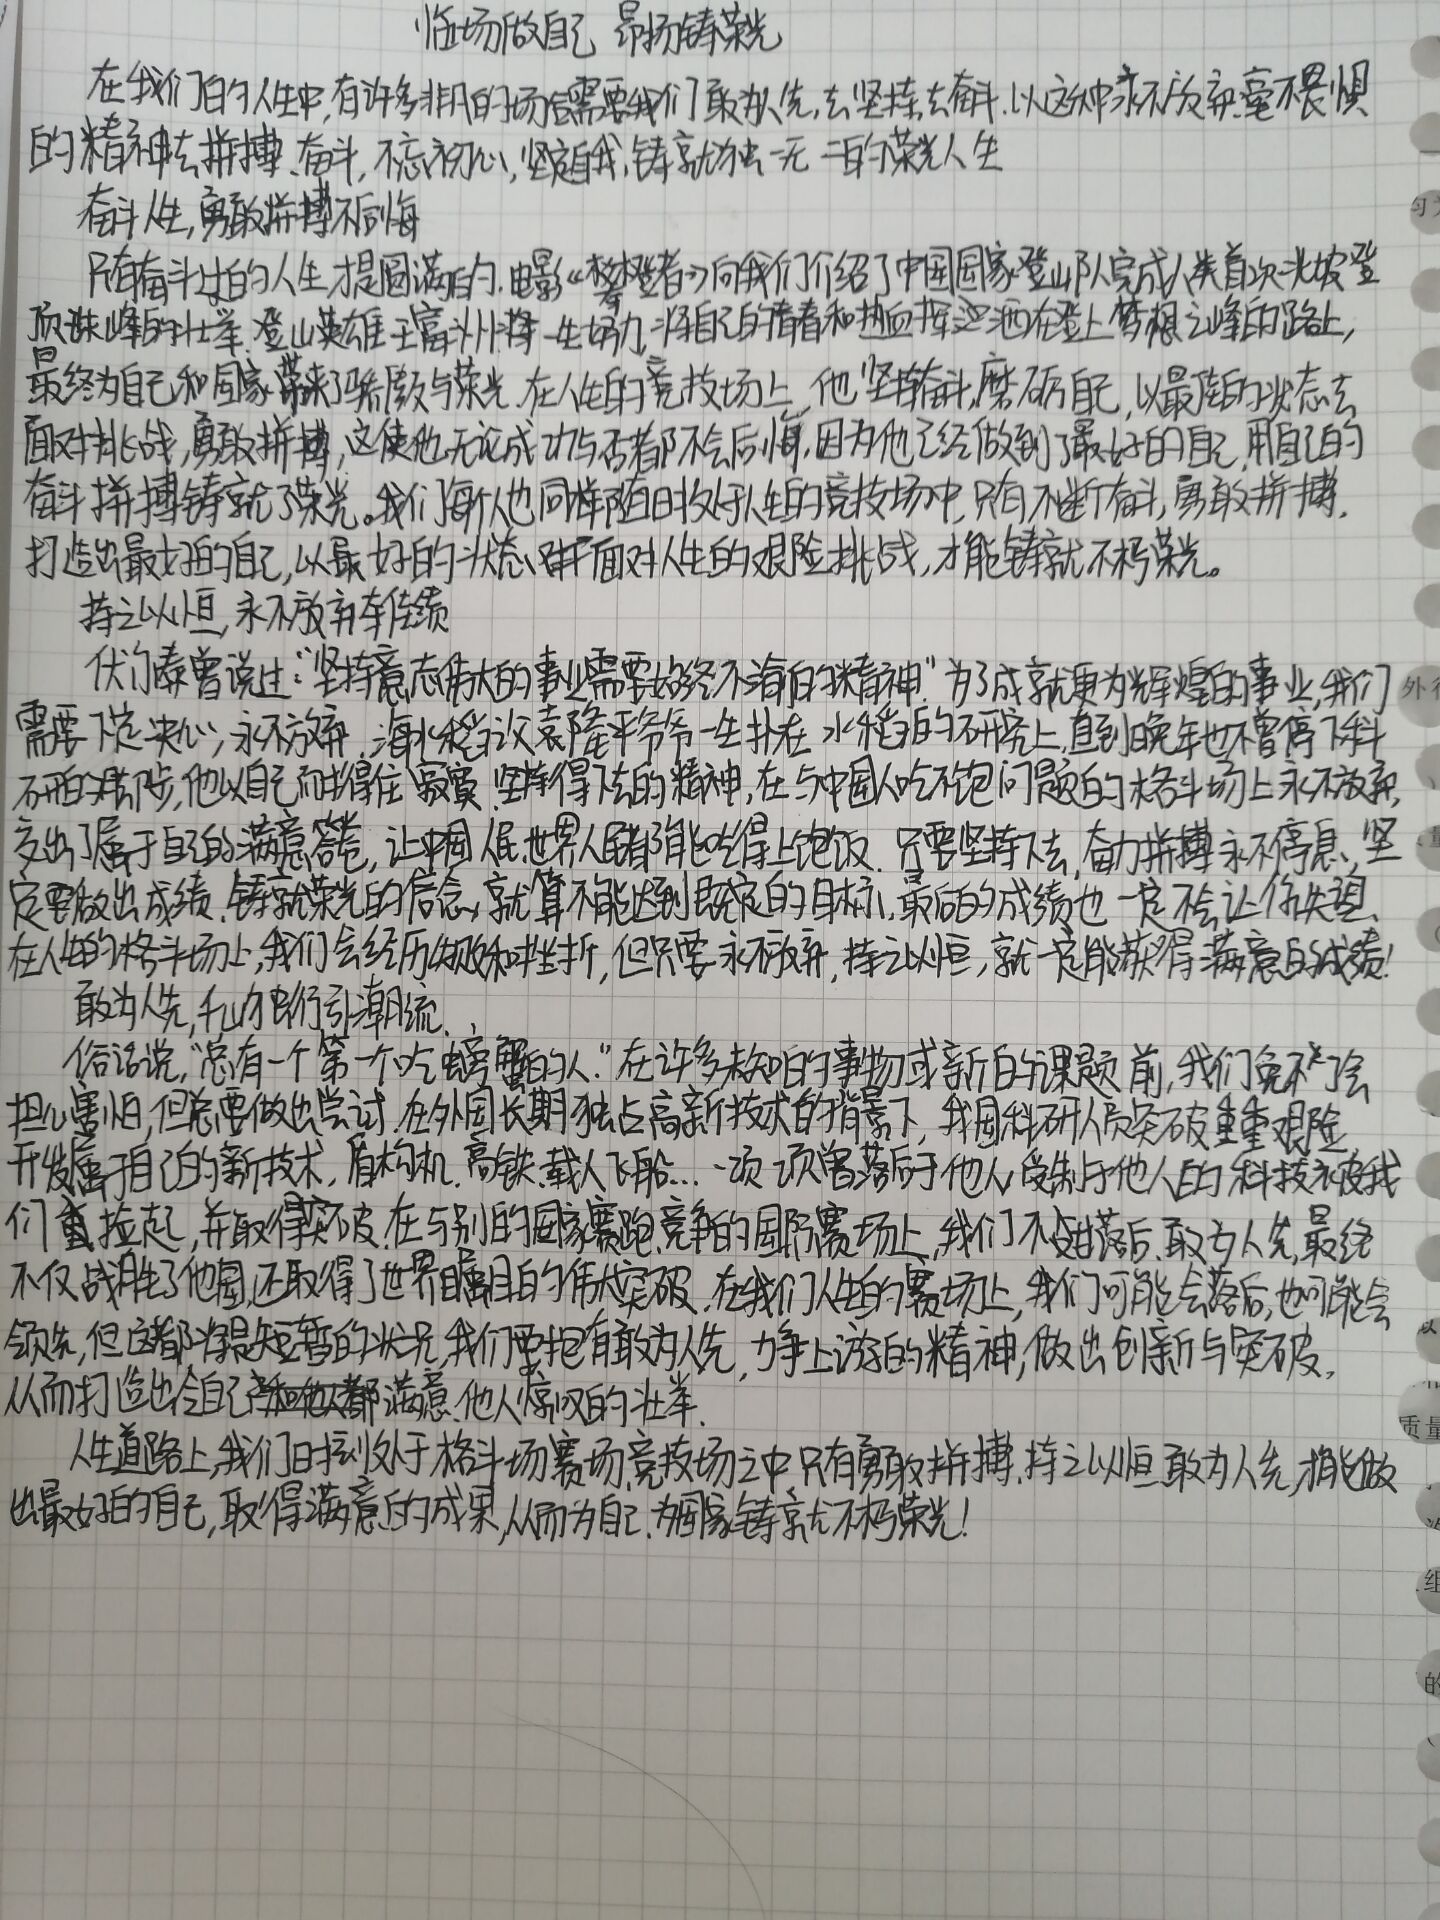 临场做自己 昂扬铸荣光
在我们的人生中,有许多非凡的场合需要我们敢为人先,去坚持、去奋斗.以这种永不放弃、毫不畏惧
的精神去拼搏、奋斗,不忘初心,坚定自我,铸就独一无二的荣光人生
奋斗人生,勇敢拼搏不后悔
只有奋斗过的人生才是圆满的.电影《攀登者》向我们介绍了中国国家登山队完成人类首次北坡登
顶珠峰的壮举.登山英雄王富洲将一生努力,将自己的青春和热血挥洒在登上梦想之峰的路上,
最终为自己和国家带来了骄傲与荣光.在人生的竞技场上,他坚持奋斗,磨砺自己,以最佳的状态去
面对挑战,勇敢拼搏,这使他无论成功与否都不会后悔,因为他已经做到了最好的自己,用自己的
奋斗拼搏铸就了荣光。我们每个人也同样随时处于人生的竞技场中,只有不断奋斗,勇敢拼搏,
打造出最好的自己,以最好的状态面对人生的艰险挑战,才能铸就不朽荣光。
持之以恒,永不放弃牵佳绩
伏尔泰曾说过:“坚持意志伟大的事业需要始终不海的精神.”为了成就更为辉煌的事业,我们
需要下定决心,永不放弃.海水稻之父袁隆平爷爷一生扑在水稻的研究上,直到晚年也不曾停下科
研的脚步,他以自己耐得住寂寞、坚持得下去的精神,在与中国人吃不饱问题的格斗场上永不放弃,
交出了属于自己的满意答卷,让中国人民、世界人民都能吃得上饱饭.只要坚持下去,奋力拼搏永不停息、坚
定要做出成绩、铸就荣光的信念,就算不能达到既定的目标,最后的成绩也一定不会让你失望.
在人生的格斗场上,我们会经历失败和挫折,但只要永不放弃,持之以恒,就一定能获得满意的成绩!
敢为人先,千山独行引潮流.
俗话说,“总有一个第一个吃螃蟹的人.”在许多未知的事物或新的课题前,我们免不了会
担心害怕,但总要做出尝试.在外国长期独占高新技术的背景下,我国科研人员突破重重艰险
开发属于自己的新技术,盾构机、高铁、载人飞船...一项项曾落后于他人、受制于他人的科技被我
们重拾起,并取得突破.在与别的国家赛跑、竞争的国际赛场上,我们不甘落后、敢为人先,最终
不仅战胜了他国,还取得了世界瞩目的伟大突破.在我们人生的赛场上,我们可能会落后,也可能会
领先,但这都将是短暂的状况,我们要抱有敢为人先,力争上游的精神,做出创新与突破,
从而打造出令自己满意、他人惊叹的壮举.
人生道路上,我们时刻处于格斗场、赛场、竞技场之中,只有勇敢拼搏、持之以恒、敢为人先,才能做
出最好的自己,取得满意的成果,从而为自己、为国家铸就不朽荣光!
外行
质量
组
的